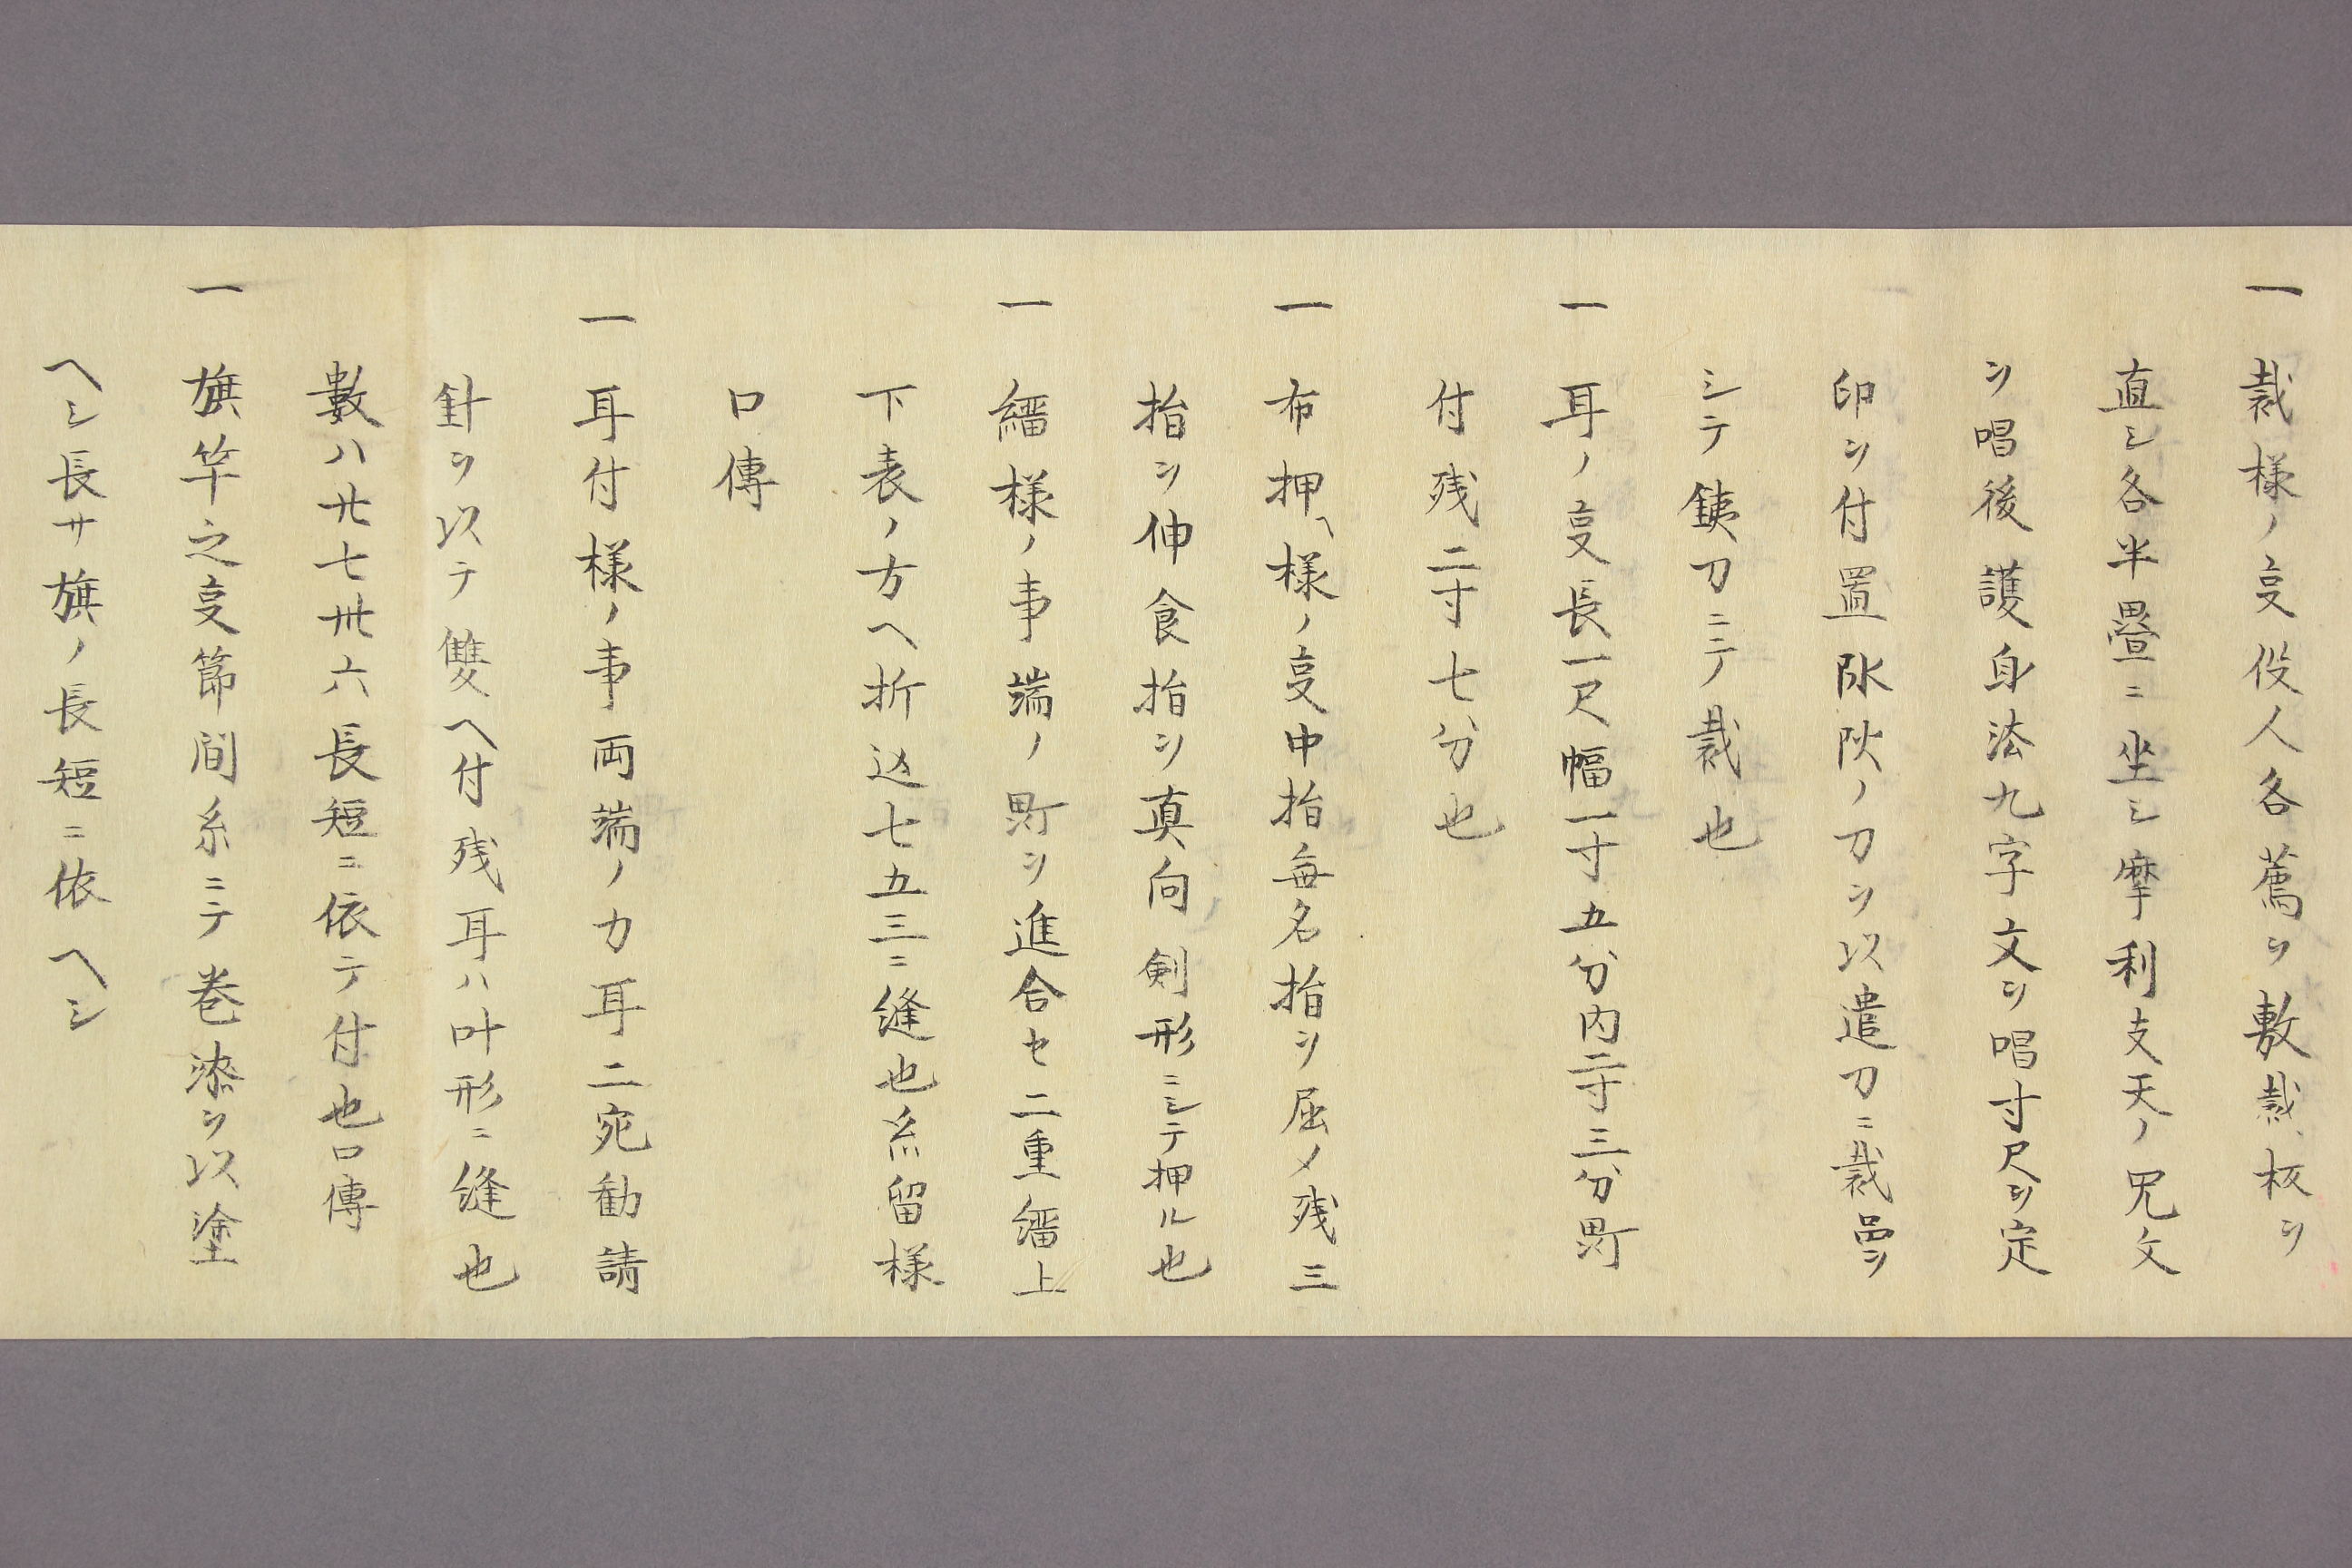 一 裁様ノ㕝役人各薦ヲ敷裁板ヲ
直シ各半疊ニ坐シ摩利支天ノ咒文
ヲ唱後護身法九字文ヲ唱寸尺ヲ定
印ヲ付置陰陽ノ刀ヲ以遣刀ニ裁
シテ鋏刀ニテ裁也
一 耳ノ㕝長一尺幅一寸五分内二寸三分
付残二寸七分也
一 布押ヘ様ノ㕝中指毎名指ヲ屈ノ残三
指ヲ伸食指ヲ真向剣形ニシテ押ル也
一 様ノ事端ノヲ進合セ二重上
下表ノ方ヘ折返七五三ニ縫也糸留様
口傳
一 耳付様ノ事両端ノカ耳二宛勧請
針ヲ以テ雙ヘ付残耳ハ叶形ニ縫也
數ハ廿七卅六長短ニ依テ付也口傳
一 旗竿之㕝節間糸ニテ巻漆ヲ以塗
ヘシ長サ旗ノ長短ニ依ヘシ